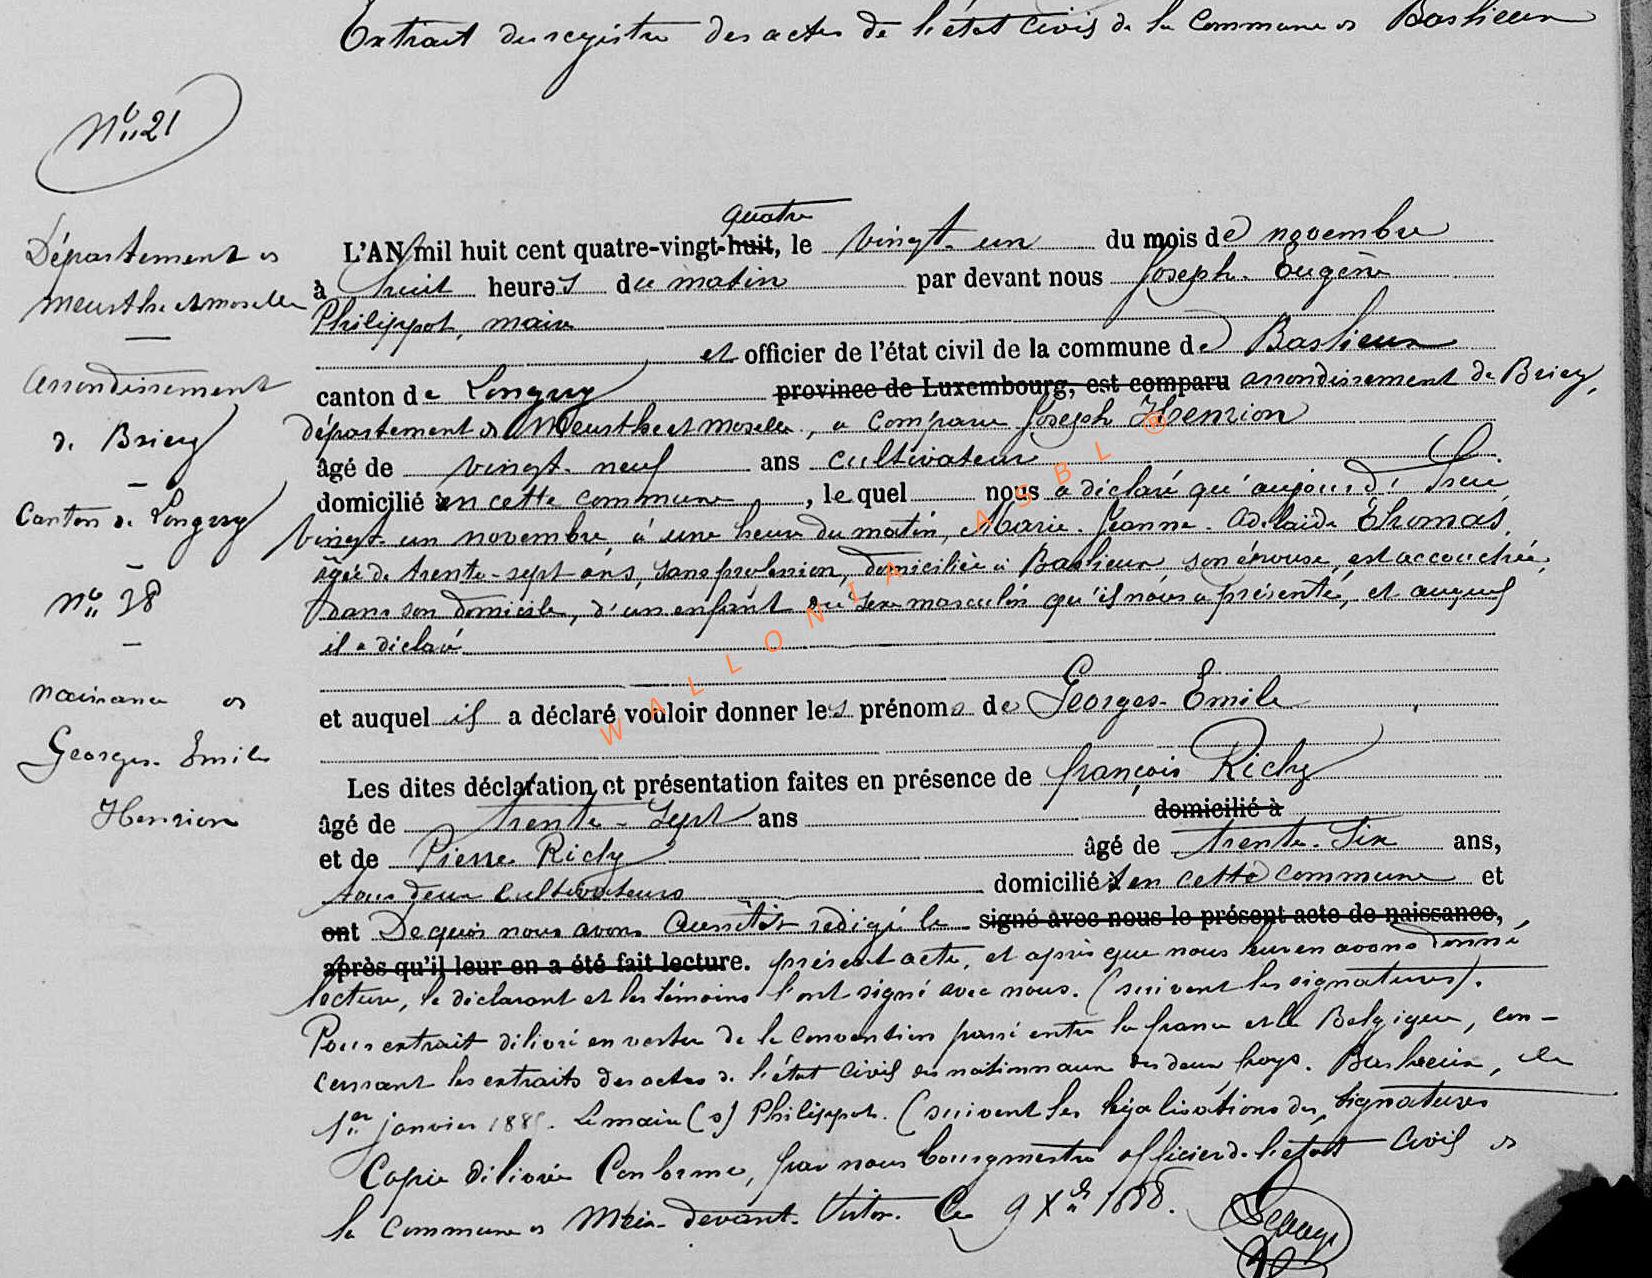 Extrait du registre des actes de l'état civil de la commune de Baslieux
N° 21
Département de
Meurthe et moselle
Arrondissement
de Briey
Canton de Longwy
N° 38
naissance de
Georges Emile
Henrion
quatre
L'AN mil huit cent quatre-vingt-huit, le vingt-un du mois de novembre
à huit heures du matin par devant nous Joseph Eugène
Philippot, maire
et officier de l'état civil de la commune de Baslieux
canton de Longwy province de Luxembourg, est comparu arrondissement de Briey,
département de Meurthe et moselle, a comparu Joseph Henrion
âgé de vingt-neuf ans cultivateur
domicilié en cette commune, le quel nous a déclaré qu'aujourd'hui
vingt-un novembre, à une heure du matin, Marie-Jeanne-Adelaïde Thomas,
âgée de trente-sept ans, sans profession, domiciliée à Baslieux son épouse, est accouchée,
dans son domicile, d'un enfant du sexe masculin qu'il nous a présenté, et auquel
il a déclaré
et auquel il a déclaré vouloir donner les prénoms de Georges-Emile
Les dites déclaration et présentation faites en présence de françois Richy
âgé de trente-sept ans domicilié à
et de Pierre Richy âgé de trente-six ans,
tous deux cultivateurs domiciliés en cette commune et
ont De quoi nous avons aussitôt rédigé le signé avec nous le présent acte de naissance,
après qu'il leur en a été fait lecture. présent acte, et après que nous leur en avons donné
lecture, le déclarant et les témoins l'ont signé avec nous. (suivent les signatures).
Pour extrait délivré en vertu de la convention passé entre la france et la Belgique, con-
cernant les extraits des actes de l'état civil des nationaux des deux pays. Baslieux, le
1er janvier 188. Le maire (s) Philippot. (suivent les légalisations des signatures
Copie délivrée conforme, par nous bourgmestre officier de l'état civil de
la commune de Meix-devant-Virton. Ce 9 Xbre 1888.
WALLONIA ASBL ®